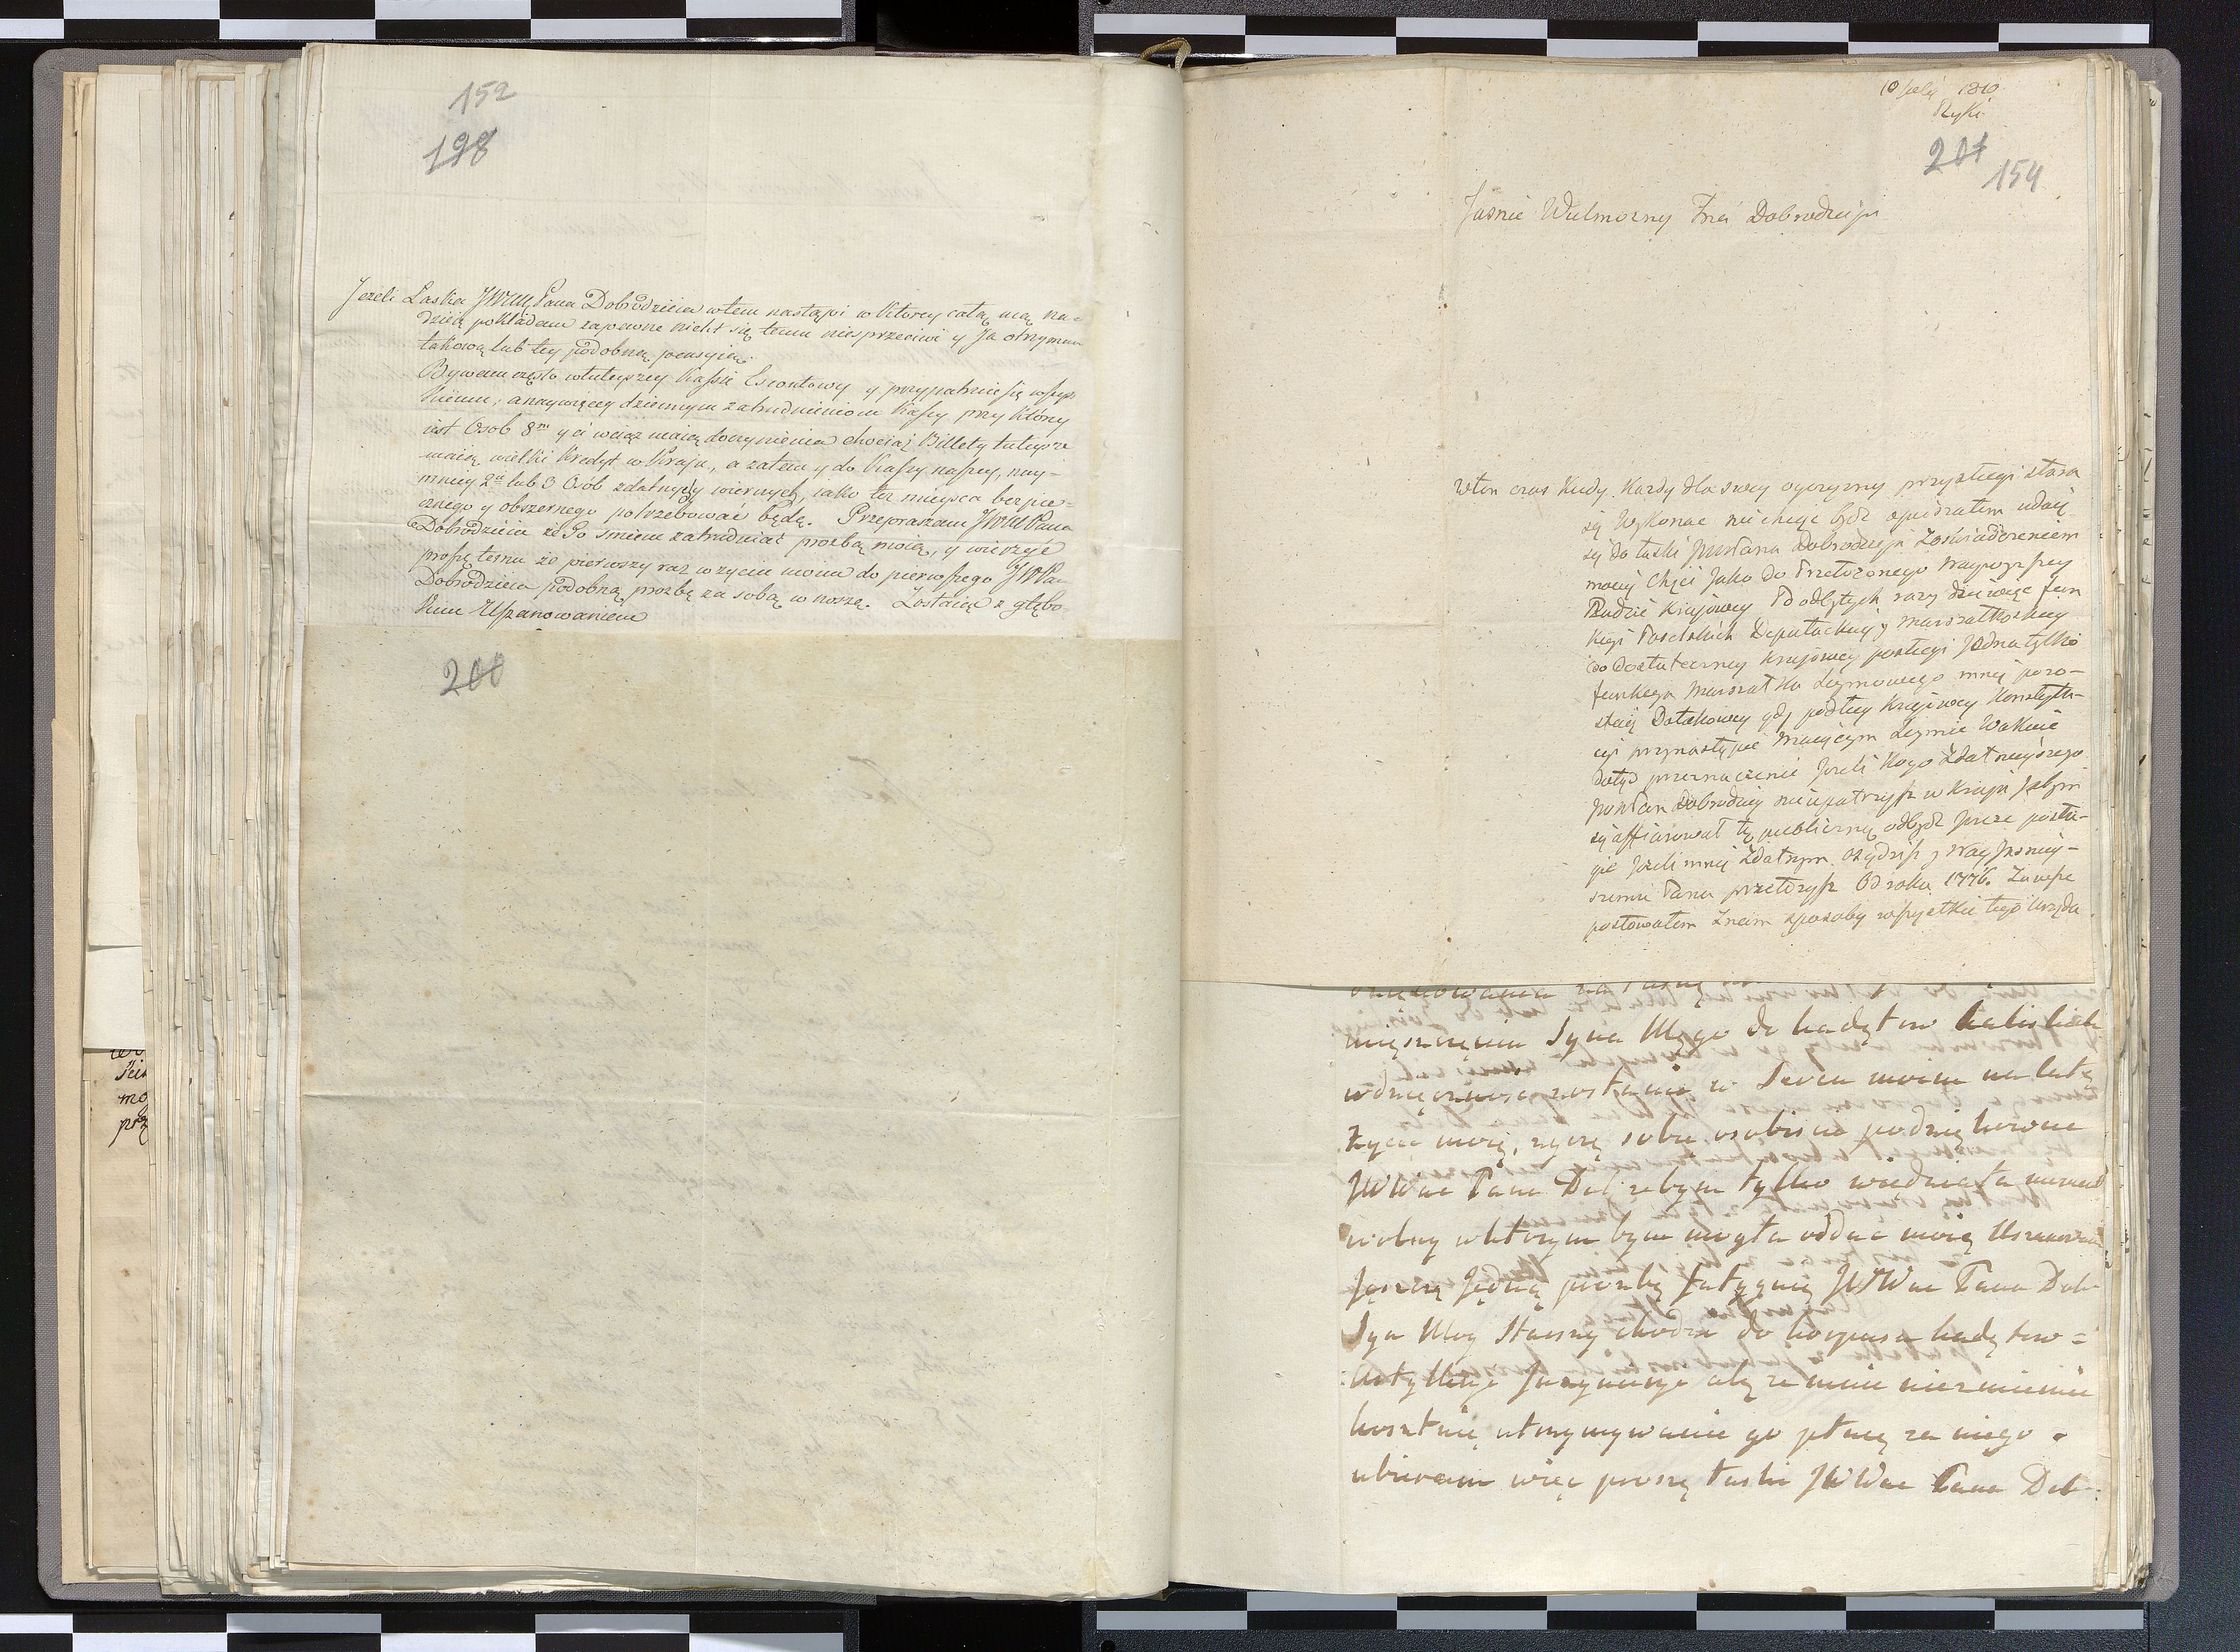 152
198
Jezeli Łaska JWW Pana Dobrodzieia wtem nastąpi w ktorey całą mą na=
dzieię pokładam zapewne nicht się temu niesprzeciwi y Ja otrzymam
takową lub tey podobną pensyią.
Bywam często wtuteyszey Kassie Escontowy y przypatruie się wszys
kiemu, a naywięcey dziennym zatrudnieniom Kassy przy który
iest Osob 8m y ci wciąz maią doczynienia chociaz Billety tuteysze
maią wielki Kredyt w Kraju, a zatem y do Kassy naszey, nay-
mniey 2ch lub 3 Osób zdatnych y wiernych, iako tez mieysca bezpie=
cznego y obszernego potrzebować będę. Przepraszam JWW Pana
Dobrodzieia że Go śmiem zatrudniać prozbą moią, y wierzyć
proszę temu że pierwszy raz w zyciu moim do pierwszego JWPa
Dobrodzieia podobną prozbę za sobą wnoszę. Zostaiąc z głębo
kim Uszanowaniem
200
10 1810
Ryki
201
154
Jasnie Wielmozny Dobrodzieju
wten czas Kiedy Kazdy dla swey oyczyzny przysługi stara
się Wykonac nie chcąc bydz opuidzalem udaię
się do łaski JWWPana Dobrodzieja Zoświadczeniem
mocey Chęci Jako do Przełożonego Naywyzszey
Radzie Kraiowey Po odbytych razy dziewięć fun
kcyi Poselskich Deputackiey y Marszałkoskiey
do Dostateczney Kraiowey posługi Jedna tylko
funkcya Marszałka Seymowego mnie pozo-
staie Dotakowey gdy podług Kraiowey Konstytu-
cyi przynastąpić Maiącym Seymie Wakuie
dotąd przeznaczenie Jezeli Kogo Zdatnieyszego
JWWPan Dobrodziey nieupatrzysz w Kraju Jabym
się affiarował tę publiczną odbydz Prace posłu-
gie Jezeli mnie Zdatnym osądzisz y Nayjasniey-
szemu Panu przełożysz Od roku 1776. Zawsze
posłowałem Znam sposoby wszystkie tego Urzędu
umieszczenia Syna Mego do kadetow kaliskich
wdzięcznosc zostanie w Sercu moim na całe
życie moie, zyczę sobie osobiscie podziękowac
JWWae Pana Dob zebym tylko wiedziała moment
wolny wktorym bym mogła oddac moie Uszanowa
Jeszcze Jedną prozbą fatyguie JWWae Pana Dob
Syn Moy Starszy chodzi do korpusu kadetow=
Artylleryi Jnzynieryi ale ze mnie niezmiernie
kosztuie utrzymywanie go płacę za niego.
ubieram więc proszę łaski JWWae Pana Dob